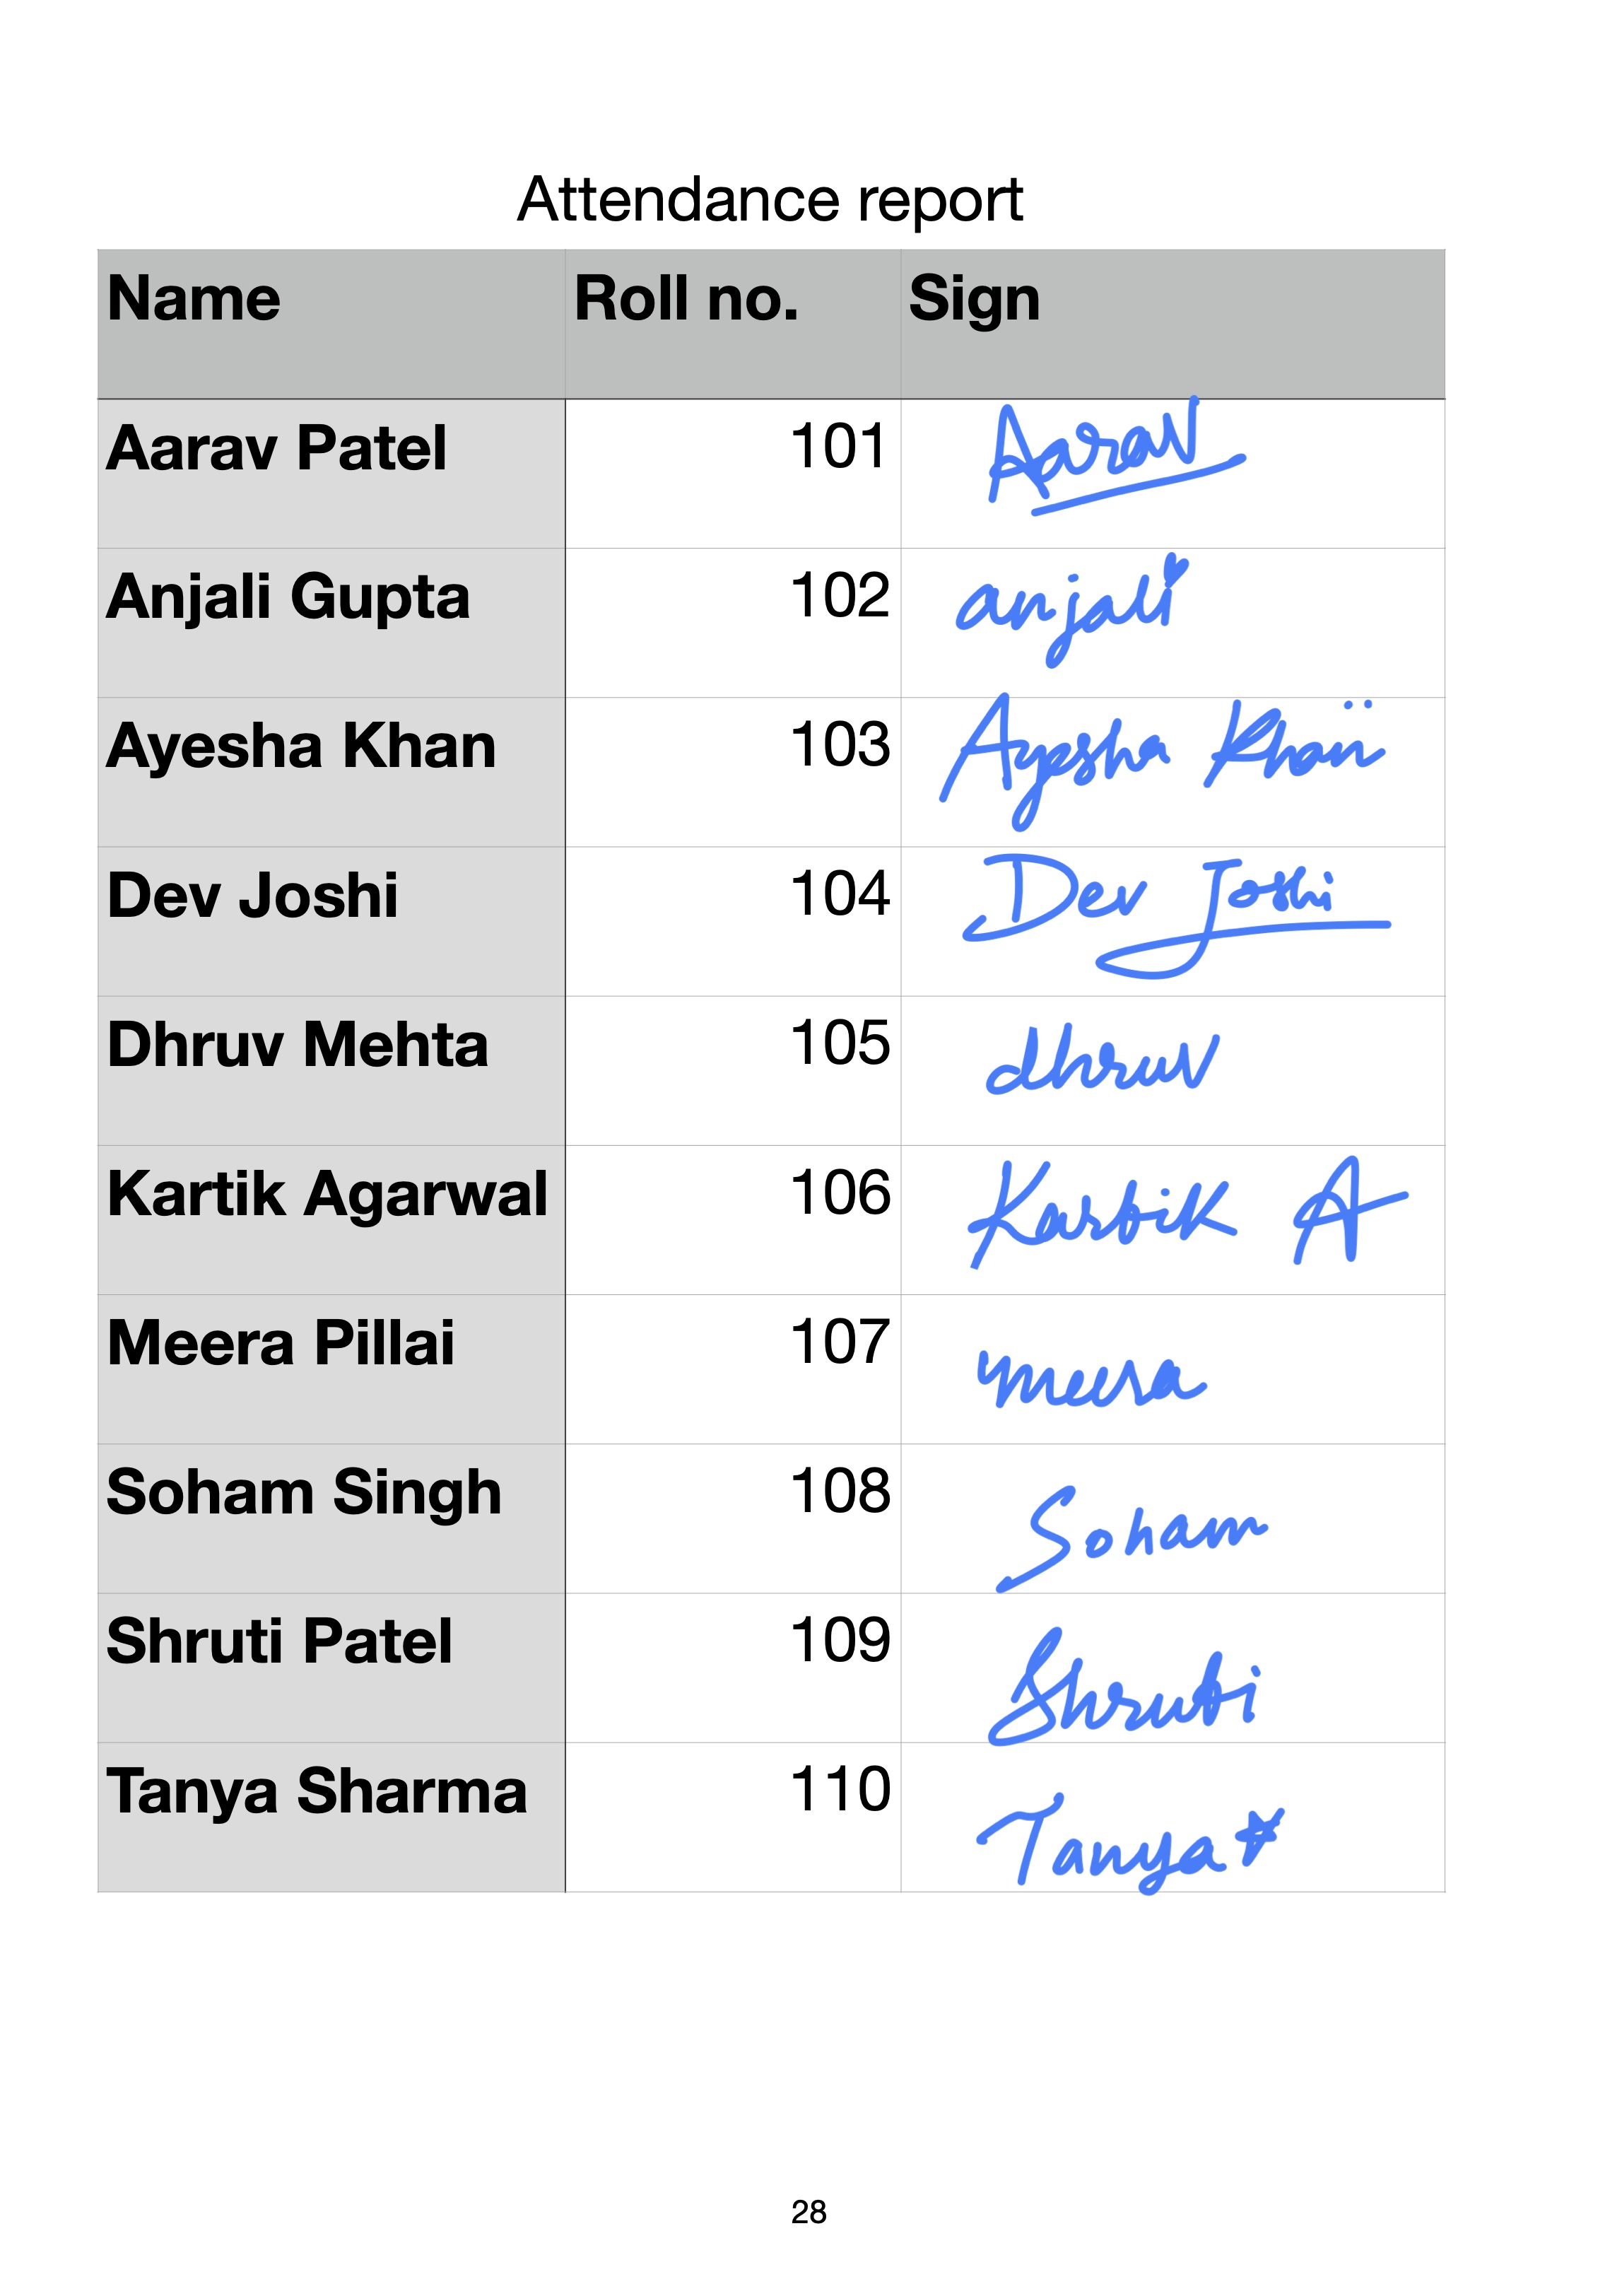 Attendance report
Name Roll no. Sign
Aarav Patel 101 Aarav
Anjali Gupta 102 anjali
Ayesha Khan 103 Ayesha Khan
Dev Joshi 104 Dev Joshi
Dhruv Mehta 105 dhruv
Kartik Agarwal 106 Kartik A
Meera Pillai 107 meera
Soham Singh 108 Soham
Shruti Patel 109 Shruti
Tanya Sharma 110 Tanya
28